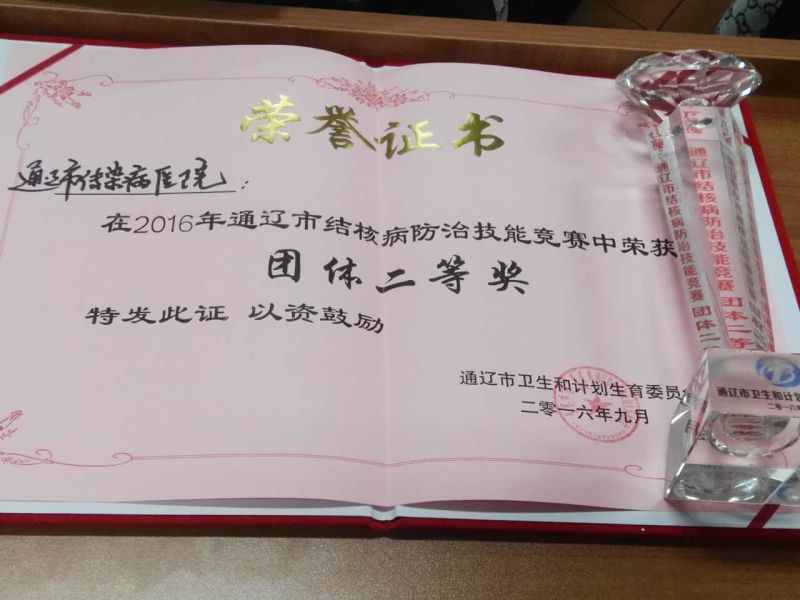 荣誉证书
通辽市传染病医院：
在2016年通辽市结核病防治技能竞赛中荣获
团体二等奖
特发此证 以资鼓励
通辽市卫生和计划生育委员会
二零一六年九月
通辽市结核病防治技能竞赛 团体二等
通辽市结核病防治技能竞赛 团体二等
通辽市卫生和计划
二零一六